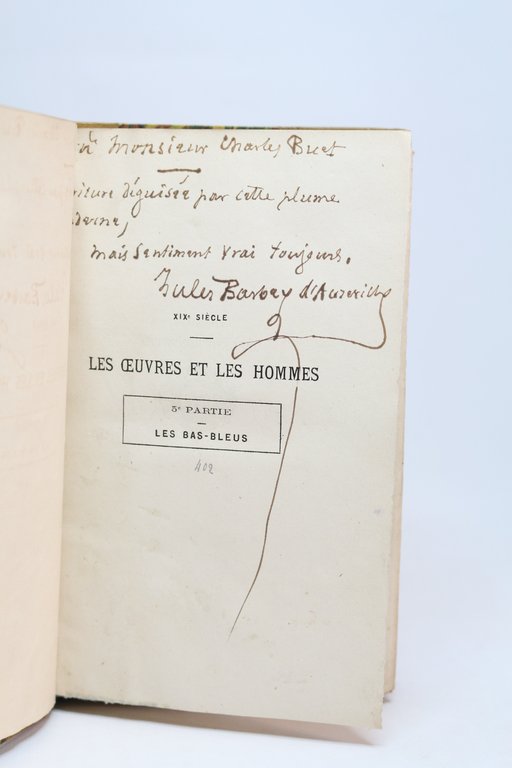 Monsieur Charles Buet
riture déguisée par cette plume
derne,
mais sentiment vrai toujours.
Jules Barbey d'Aurevilly
XIXe SIÈCLE
LES ŒUVRES ET LES HOMMES
5e PARTIE
LES BAS-BLEUS
402